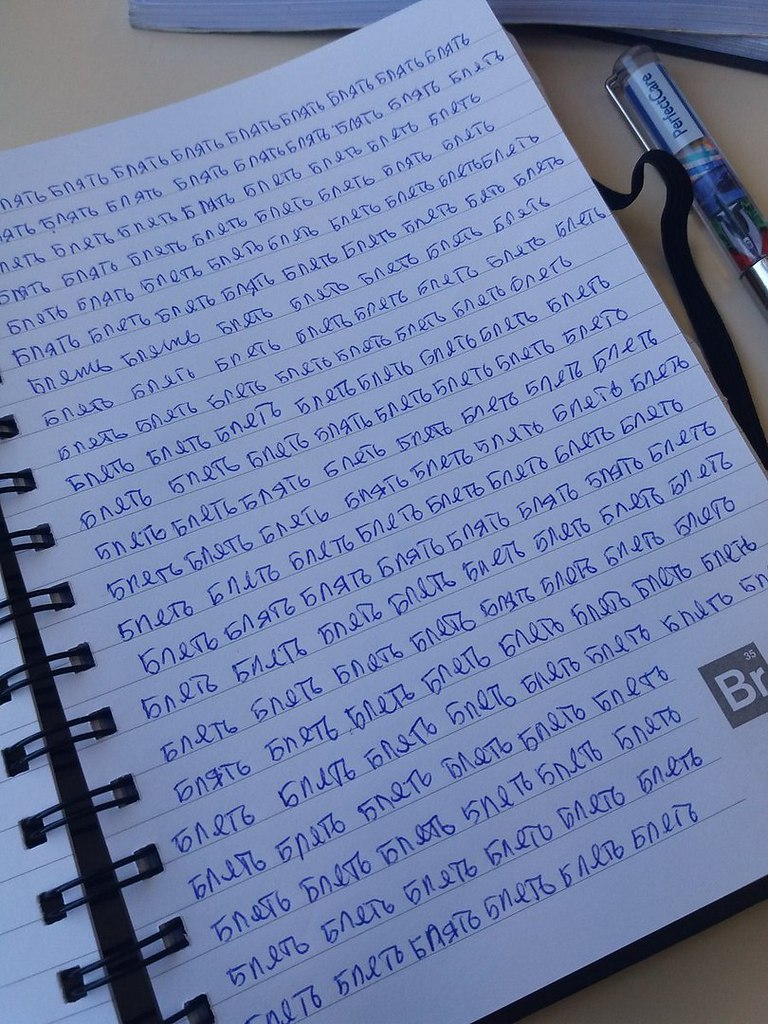 ЛЯТЬ БЛЯТЬ БЛЯТЬ БЛЯТЬ БЛЯТЬ БЛЯТЬ БЛЯТЬ БЛЯТЬ БЛЯТЬ
ЯТЬ БЛЯТЬ БЛЯТЬ БЛЯТЬ БЛЯТЬ БЛЯТЬ БЛЯТЬ БЛЯТЬ БЛЯТЬ
ЛЯТЬ БЛЯТЬ БЛЯТЬ БЛЯТЬ БЛЯТЬ БЛЯТЬ БЛЯТЬ БЛЯТЬ
БЛЯТЬ БЛЯТЬ БЛЯТЬ БЛЯТЬ БЛЯТЬ БЛЯТЬ БЛЯТЬ БЛЯТЬ
БЛЯТЬ БЛЯТЬ БЛЯТЬ БЛЯТЬ БЛЯТЬ БЛЯТЬ БЛЯТЬ БЛЯТЬ БЛЯТЬ
БЛЯТЬ БЛЯТЬ БЛЯТЬ БЛЯТЬ БЛЯТЬ БЛЯТЬ БЛЯТЬ БЛЯТЬ БЛЯТЬ
БЛЯТЬ БЛЯТЬ БЛЯТЬ БЛЯТЬ БЛЯТЬ БЛЯТЬ БЛЯТЬ
БЛЯТЬ БЛЯТЬ БЛЯТЬ БЛЯТЬ БЛЯТЬ БЛЯТЬ БЛЯТЬ БЛЯТЬ
БЛЯТЬ БЛЯТЬ БЛЯТЬ БЛЯТЬ БЛЯТЬ БЛЯТЬ БЛЯТЬ БЛЯТЬ
БЛЯТЬ БЛЯТЬ БЛЯТЬ БЛЯТЬ БЛЯТЬ БЛЯТЬ БЛЯТЬ БЛЯТЬ
БЛЯТЬ БЛЯТЬ БЛЯТЬ БЛЯТЬ БЛЯТЬ БЛЯТЬ БЛЯТЬ БЛЯТЬ
БЛЯТЬ БЛЯТЬ БЛЯТЬ БЛЯТЬ БЛЯТЬ БЛЯТЬ БЛЯТЬ БЛЯТЬ
БЛЯТЬ БЛЯТЬ БЛЯТЬ БЛЯТЬ БЛЯТЬ БЛЯТЬ БЛЯТЬ БЛЯТЬ
БЛЯТЬ БЛЯТЬ БЛЯТЬ БЛЯТЬ БЛЯТЬ БЛЯТЬ БЛЯТЬ БЛЯТЬ
БЛЯТЬ БЛЯТЬ БЛЯТЬ БЛЯТЬ БЛЯТЬ БЛЯТЬ БЛЯТЬ БЛЯТЬ
БЛЯТЬ БЛЯТЬ БЛЯТЬ БЛЯТЬ БЛЯТЬ БЛЯТЬ БЛЯТЬ БЛЯТЬ
БЛЯТЬ БЛЯТЬ БЛЯТЬ БЛЯТЬ БЛЯТЬ БЛЯТЬ БЛЯТЬ БЛЯТЬ
БЛЯТЬ БЛЯТЬ БЛЯТЬ БЛЯТЬ БЛЯТЬ БЛЯТЬ БЛЯТЬ БЛЯТЬ
БЛЯТЬ БЛЯТЬ БЛЯТЬ БЛЯТЬ БЛЯТЬ БЛЯТЬ БЛЯТЬ БЛ
БЛЯТЬ БЛЯТЬ БЛЯТЬ БЛЯТЬ БЛЯТЬ БЛЯТЬ
БЛЯТЬ БЛЯТЬ БЛЯТЬ БЛЯТЬ БЛЯТЬ БЛЯТЬ
БЛЯТЬ БЛЯТЬ БЛЯТЬ БЛЯТЬ БЛЯТЬ БЛЯТЬ
БЛЯТЬ БЛЯТЬ БЛЯТЬ БЛЯТЬ БЛЯТЬ БЛЯТЬ
PerfectCare
35
Br